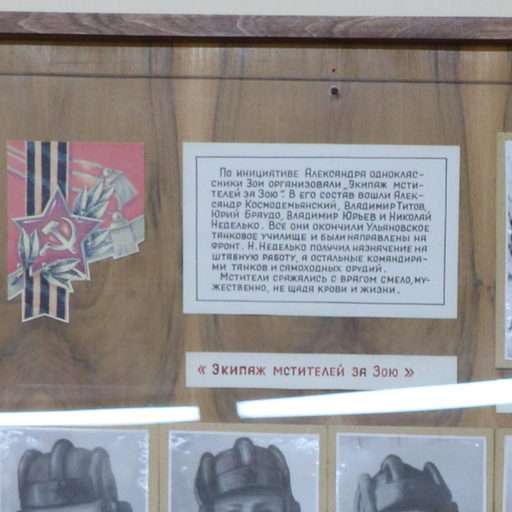 По инициативе Александра однокласс-
сники Зои организовали „Экипаж мсти-
телей за Зою". В его состав вошли Алек-
сандр Космодемьянский, Владимир Титов,
Юрий Браудо, Владимир Юрьев и Николай
Неделько. Все они окончили Ульяновское
танковое училище и были направлены на
фронт. Н. Неделько получил назначение на
штабную работу, а остальные командира-
ми танков и самоходных орудий.
Мстители сражались с врагом смело, му-
жественно, не щадя крови и жизни.
« Экипаж мстителей за Зою »